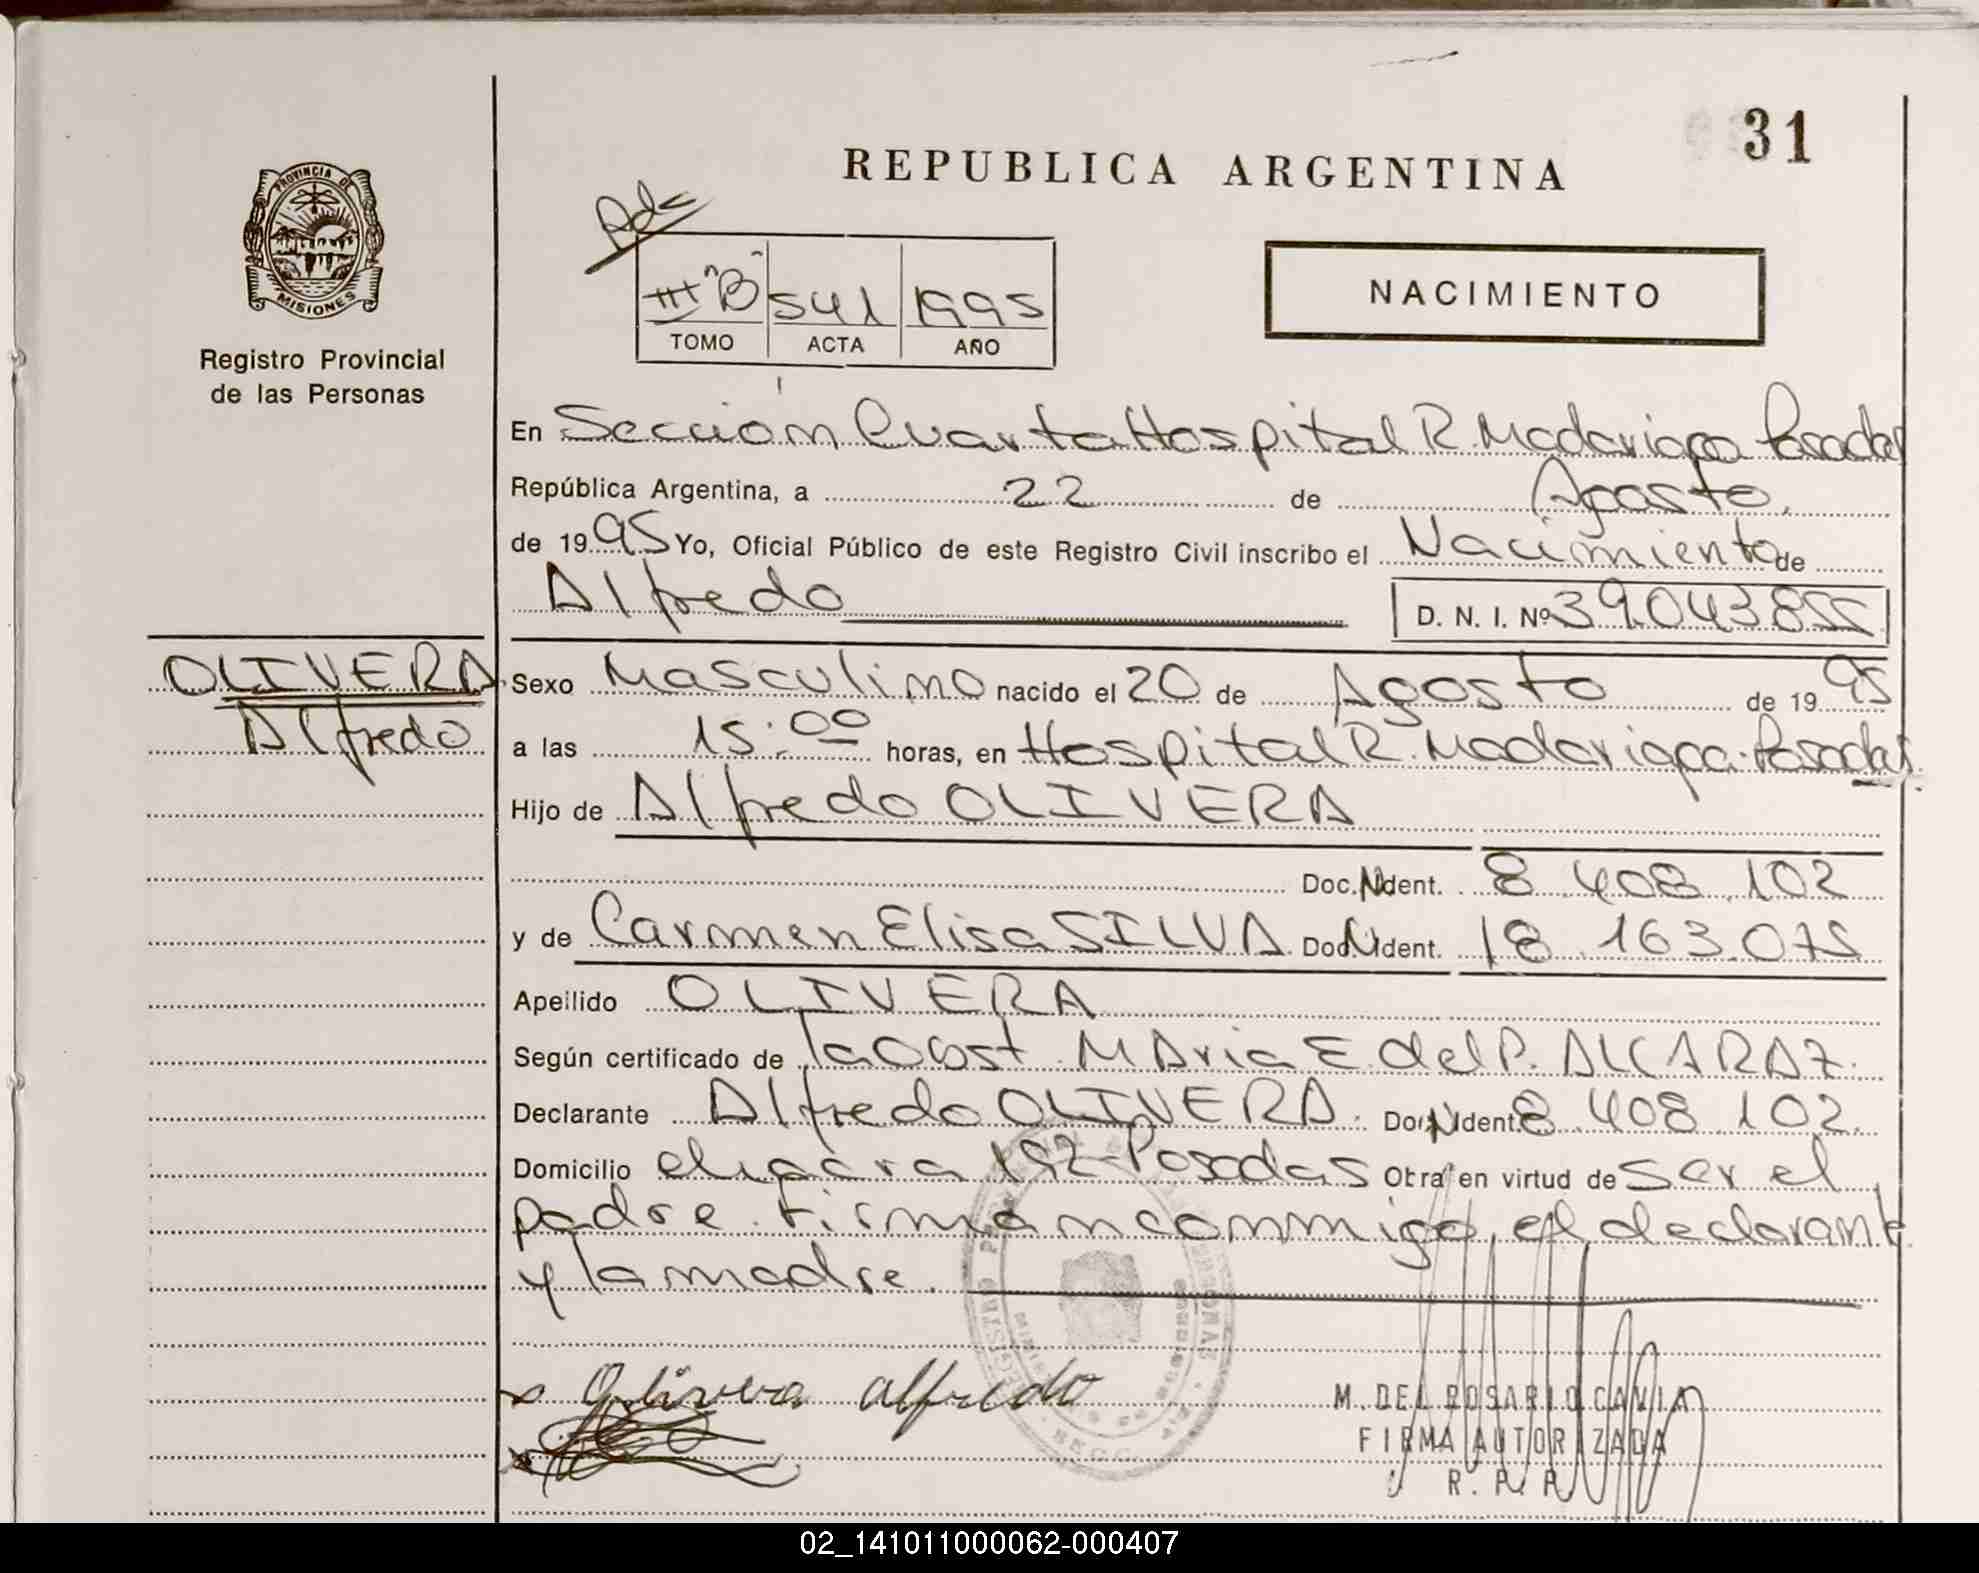 31
REPUBLICA ARGENTINA
PROVINCIA DE
MISIONES
Registro Provincial
de las Personas
III "B" 541 1995
TOMO ACTA AÑO
NACIMIENTO
En Sección Cuarta Hospital R. Madariaga Posadas
República Argentina, a 22 de Agosto.
de 1995 Yo, Oficial Público de este Registro Civil inscribo el Nacimiento de
Alfredo D. N. I. Nº 39.043.855
OLIVERA
Alfredo
Sexo Masculino nacido el 20 de Agosto de 1995
a las 15:00 horas, en Hospital R. Madariaga. Posadas.
Hijo de Alfredo OLIVERA
Doc. N Ident. 8.408.102
y de Carmen Elisa SILVA Doc. N Ident. 18.163.075
Apellido OLIVERA
Según certificado de la Obst. MAria E. del P. ALCARAZ.
Declarante Alfredo OLIVERA. Doc. N Ident. 8.408.102.
Domicilio 192- Posadas Obra en virtud de ser el
padre. Firman conmigo, el declarante
y la madre.
Olivera alfredo
M. DEL ROSARIO CAVIA
FIRMA AUTORIZADA
R. P. P.
02_141011000062-000407